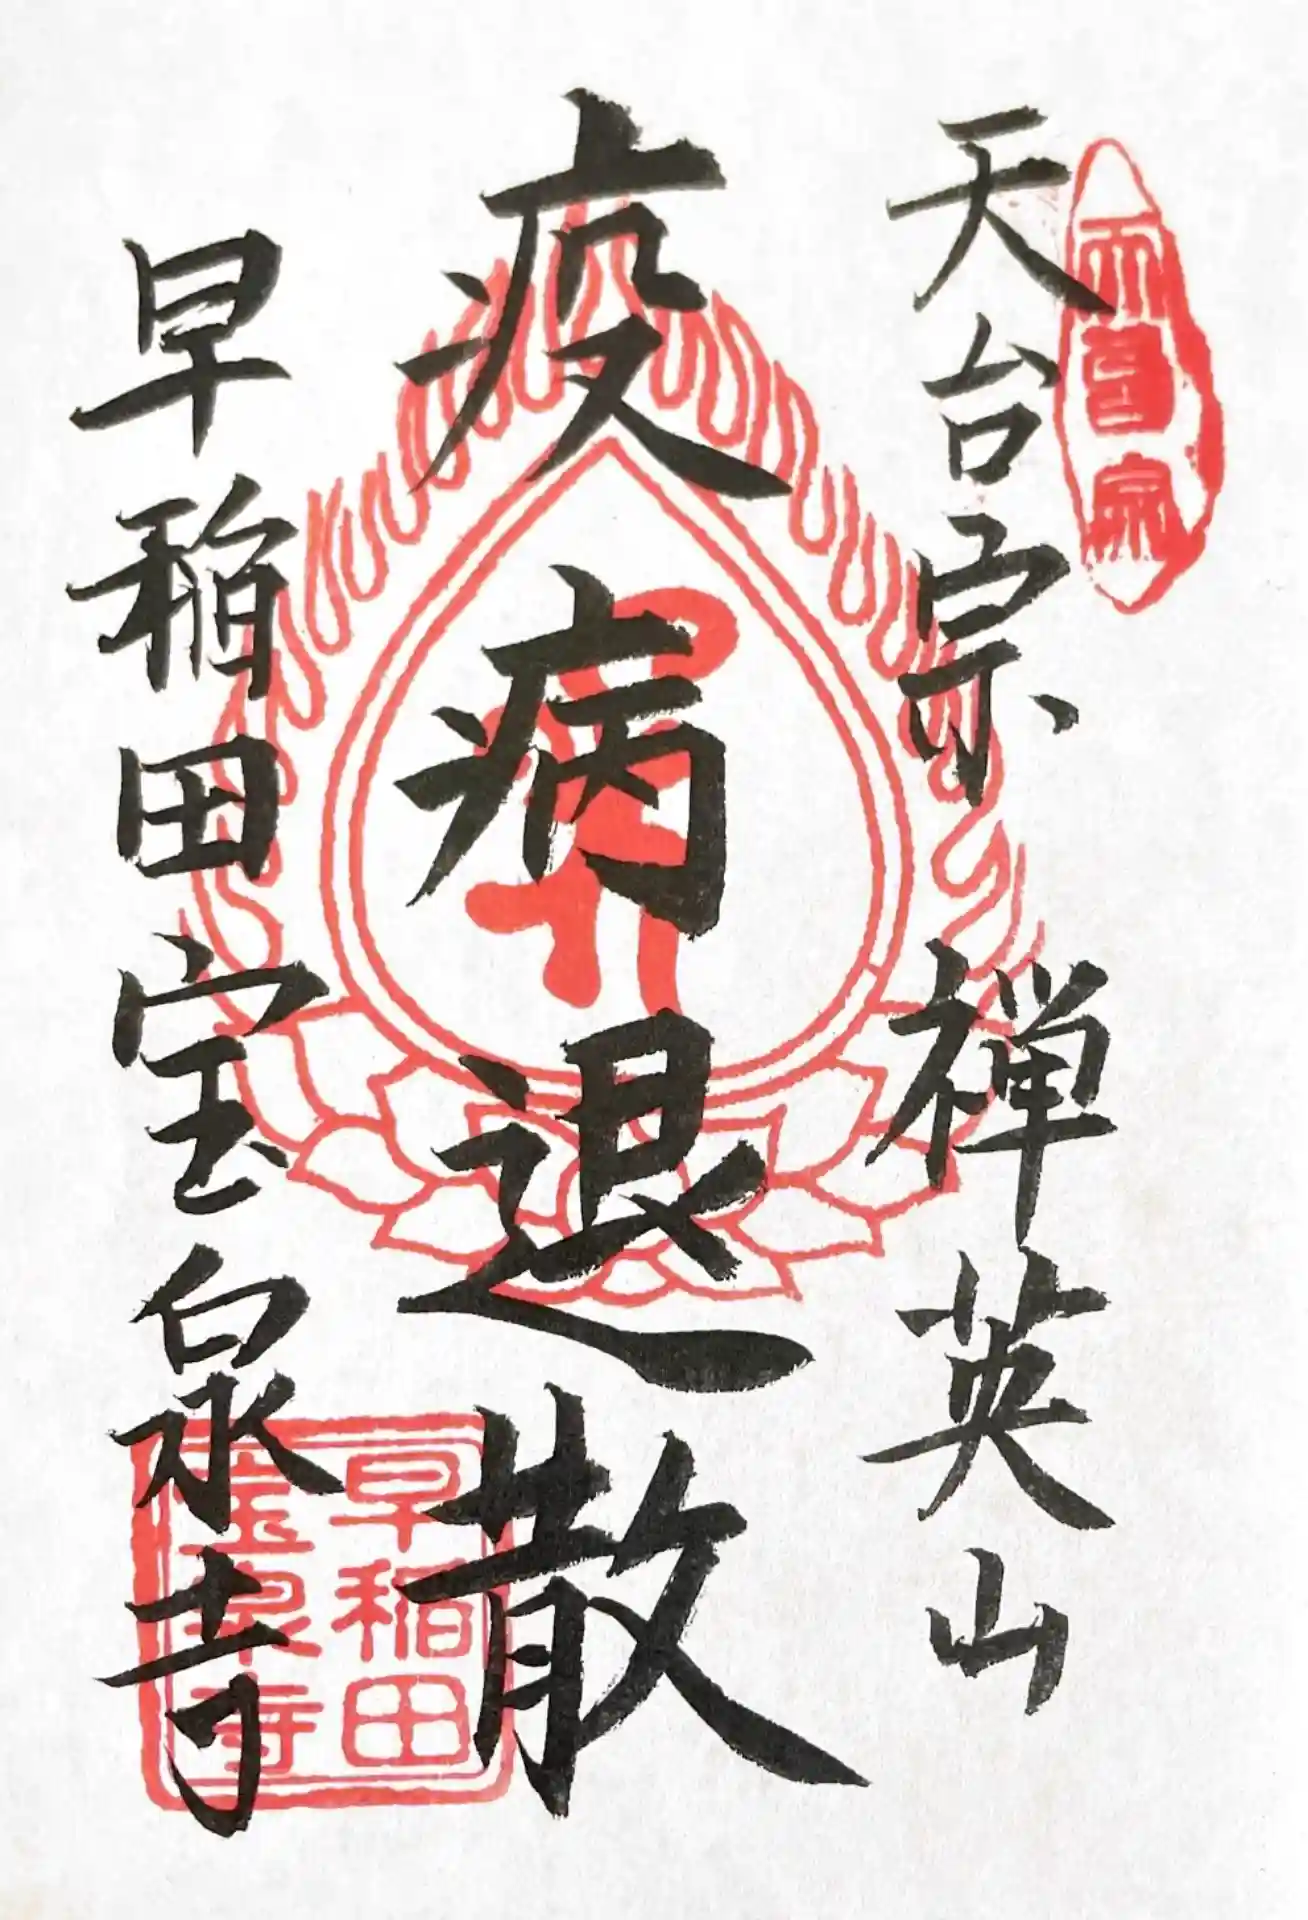 天台宗
天台宗、禅英山
疫病退散
早稲田宝泉寺
早稲田
宝泉寺